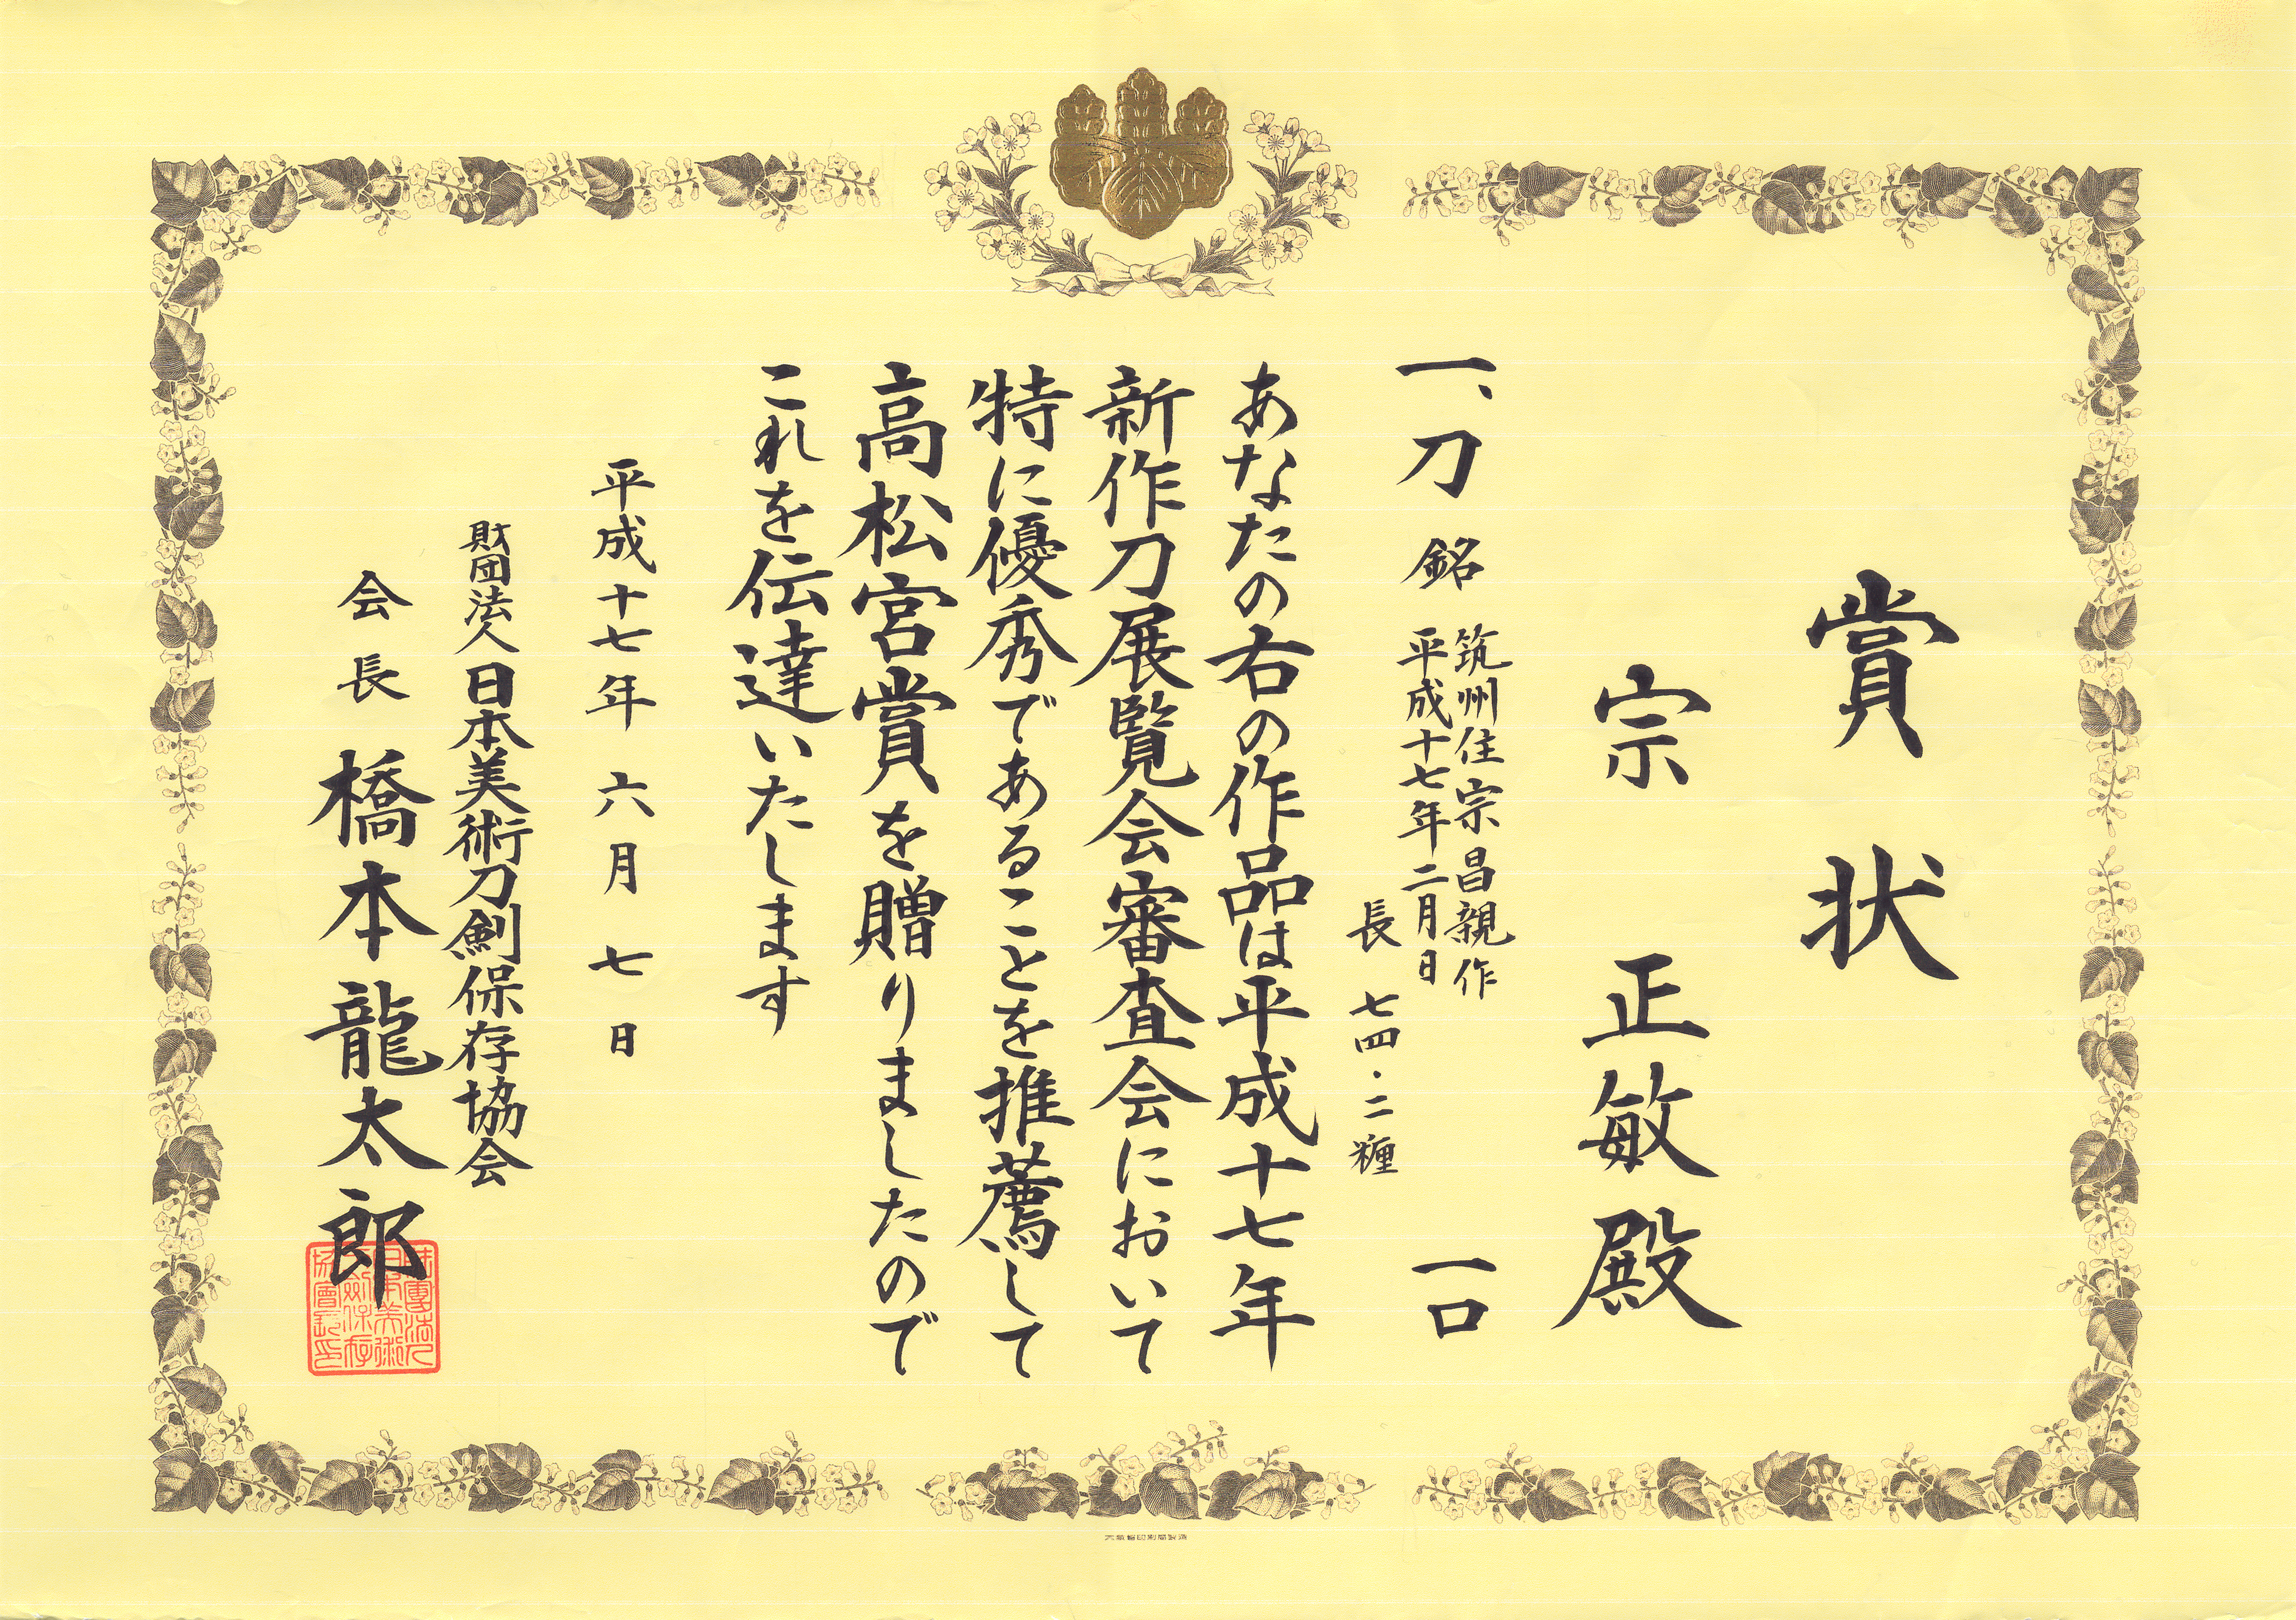 賞状
宗 正敏殿
一、刀 銘 筑州住宗昌親作 一口
平成十七年二月日
長 七四・二糎
あなたの右の作品は平成十七年
新作刀展覧会審査会において
特に優秀であることを推薦して
高松宮賞を贈りましたので
これを伝達いたします
平成十七年 六月 七日
財団法人日本美術刀剣保存協会
会長 橋本龍太郎
大蔵省印刷局製造